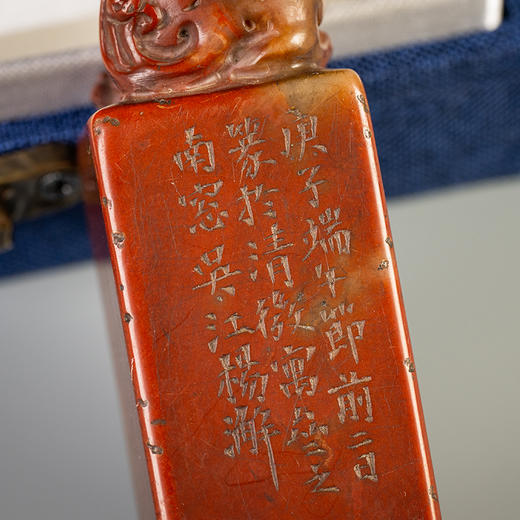 庚子端午節前二日
篆於清寓盦之
南窓吳江楊澥